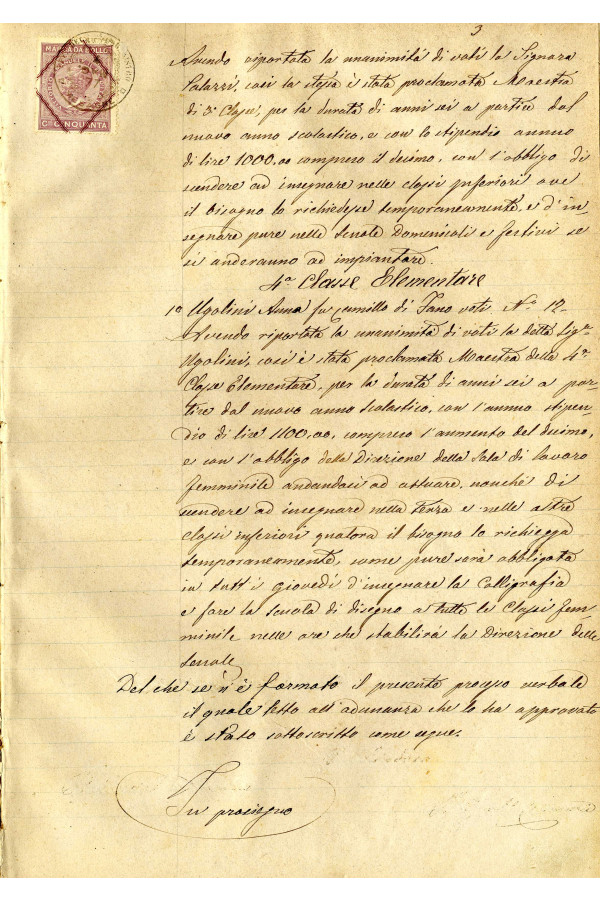 3
MARCA DA BOLLO
Cmi CINQUANTA
Avendo riportata la unanimità di voti la Signora
Palazzi, così la stessa è stata proclamata Maestra
di 3a Classe, per la durata di anni sei a partire dal
nuovo anno scolastico, e con lo stipendio annuo
di lire 1000,00 compreso il decimo, con l'obbligo di
scendere ad insegnare nelle classi inferiori ove
il bisogno lo richiedesse temporaneamente, e d'in-
segnare pure nelle Scuole Domenicali e festivi se
si anderanno ad impiantare.
4a Classe Elementare
1o Ugolini Anna fu Camillo di Fano voti No 12-
Avendo riportata la unanimità di voti la detta Siga
Ugolini, così è stata proclamata Maestra della 4a
Classe Elementare, per la durata di anni sei a par-
tire dal nuovo anno scolastico, con l'annuo stipen-
dio di lire 1100,00, compreso l'aumento del decimo,
e con l'obbligo della Direzione della Sala di lavoro
femminile andandosi ad attuare, nonchè di
scendere ad insegnare nella terza e nelle altre
classi inferiori qualora il bisogno lo richiegga
temporaneamente, come pure sarà obbligata
in tutti i giovedì d'insegnare la Calligrafia
e fare la scuola di disegno a tutte le Classi fem-
minile nelle ore che stabilirà la Direzione delle
scuole
Del che se n'è formato il presente processo verbale
il quale letto all'adunanza che lo ha approvato
è stato sottoscritto come segue.
In prosieguo